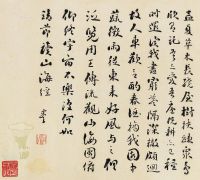 孟夏草木長繞屋樹扶疎衆鳥
欣有託吾亦愛吾廬既耕亦已種
時還讀我書窮巷隔深轍頗迴
故人車歡然酌春酒摘我園中
蔬微雨從東來好風與之俱
泛覽周王傳流觀山海圖俯
仰終宇宙不樂復何如
讀山海經